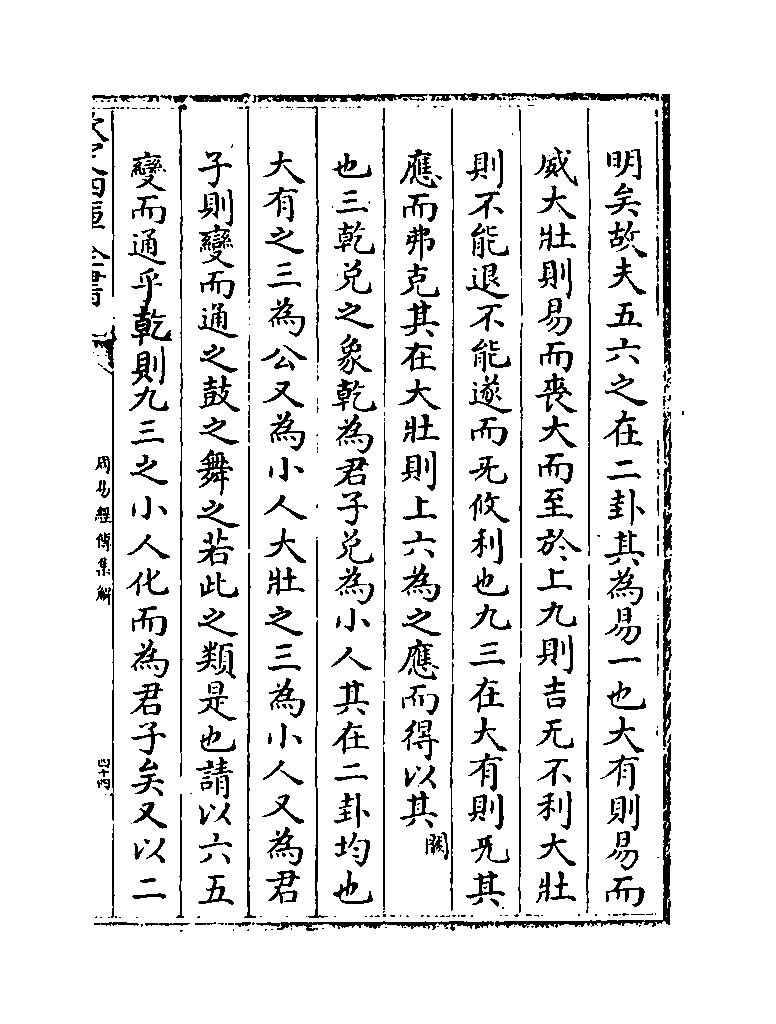 明矣故夫五六之在二卦其為易一也大有則易而
威大壯則易而喪大而至於上九則吉无不利大壯
則不能退不能遂而旡攸利也九三在大有則旡其
應而弗克其在大壯則上六為之應而得以其闕
也三乾兌之象乾為君子兌為小人其在二卦均也
大有之三為公又為小人大壯之三為小人又為君
子則變而通之鼓之舞之若此之類是也請以六五
變而通乎乾則九三之小人化而為君子矣又以二
欽定四庫全書
周易經傳集解
四十四